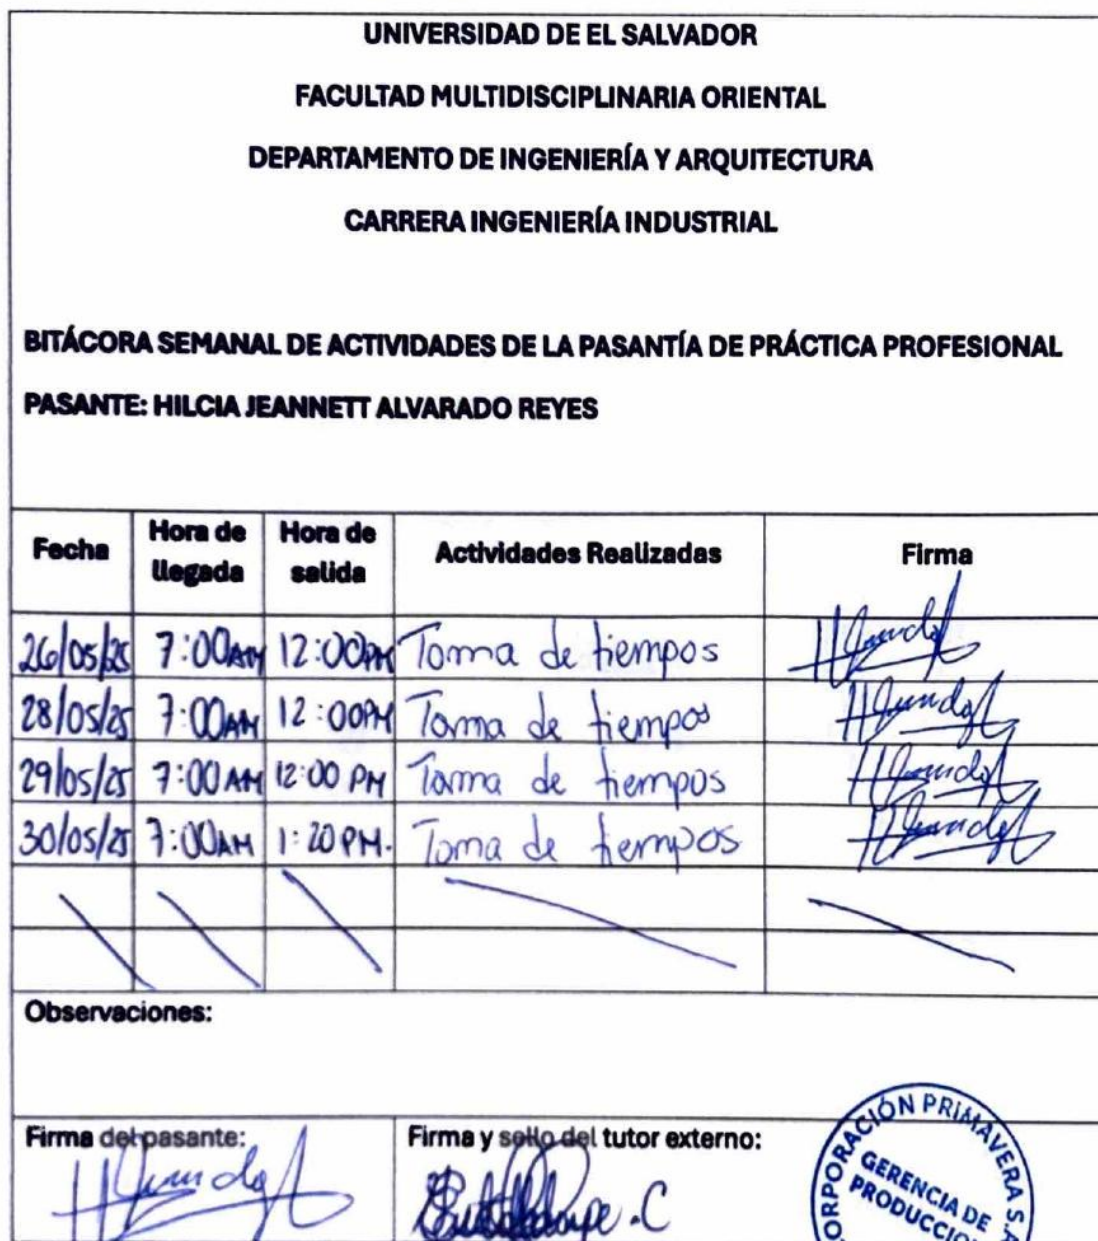 UNIVERSIDAD DE EL SALVADOR
FACULTAD MULTIDISCIPLINARIA ORIENTAL
DEPARTAMENTO DE INGENIERÍA Y ARQUITECTURA
CARRERA INGENIERÍA INDUSTRIAL
BITÁCORA SEMANAL DE ACTIVIDADES DE LA PASANTÍA DE PRÁCTICA PROFESIONAL
PASANTE: HILCIA JEANNETT ALVARADO REYES
Fecha Hora de llegada Hora de salida Actividades Realizadas Firma
26/05/25 7:00AM 12:00PM Toma de tiempos
28/05/25 7:00AM 12:00PM Toma de tiempos
29/05/25 7:00AM 12:00 PM Toma de tiempos
30/05/25 7:00AM 1:20 PM. Toma de tiempos
Observaciones:
Firma del pasante: Firma y sello del tutor externo:
CORPORACIÓN PRIMAVERA S.A
GERENCIA DE
PRODUCCION